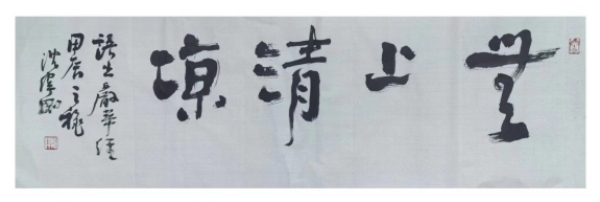 無上清涼
語出嚴華經
甲辰之秋
洪厚甜